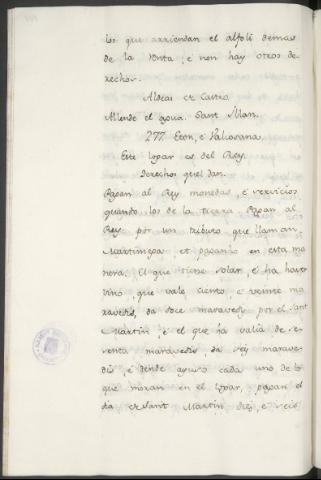 los que arriendan el alfolí demas
de la renta, e non hay otros de-
rechos.
Aldeas de Castro
Allende el agua. Sant Illan.
277. Eron, e Valiosana.
Este logar es del Rey.
Derechos quel dan.
Pagan al Rey monedas, e servicios
quando los de la tierra. Pagan al
Rey por un tributo que llaman
Martiniega, et paganlo en esta ma
nera. El que tiene solar, e ha haver
vino, que vale ciento, e veinte ma
ravedis, da doce maravedis por el Sant
Martin, e el que ha valía de se-
senta maravedis, da seis marave-
dis, e dende ayuso cada uno de lo
que moran en el logar, pagan el
dia de Sant Martin diez, e seis